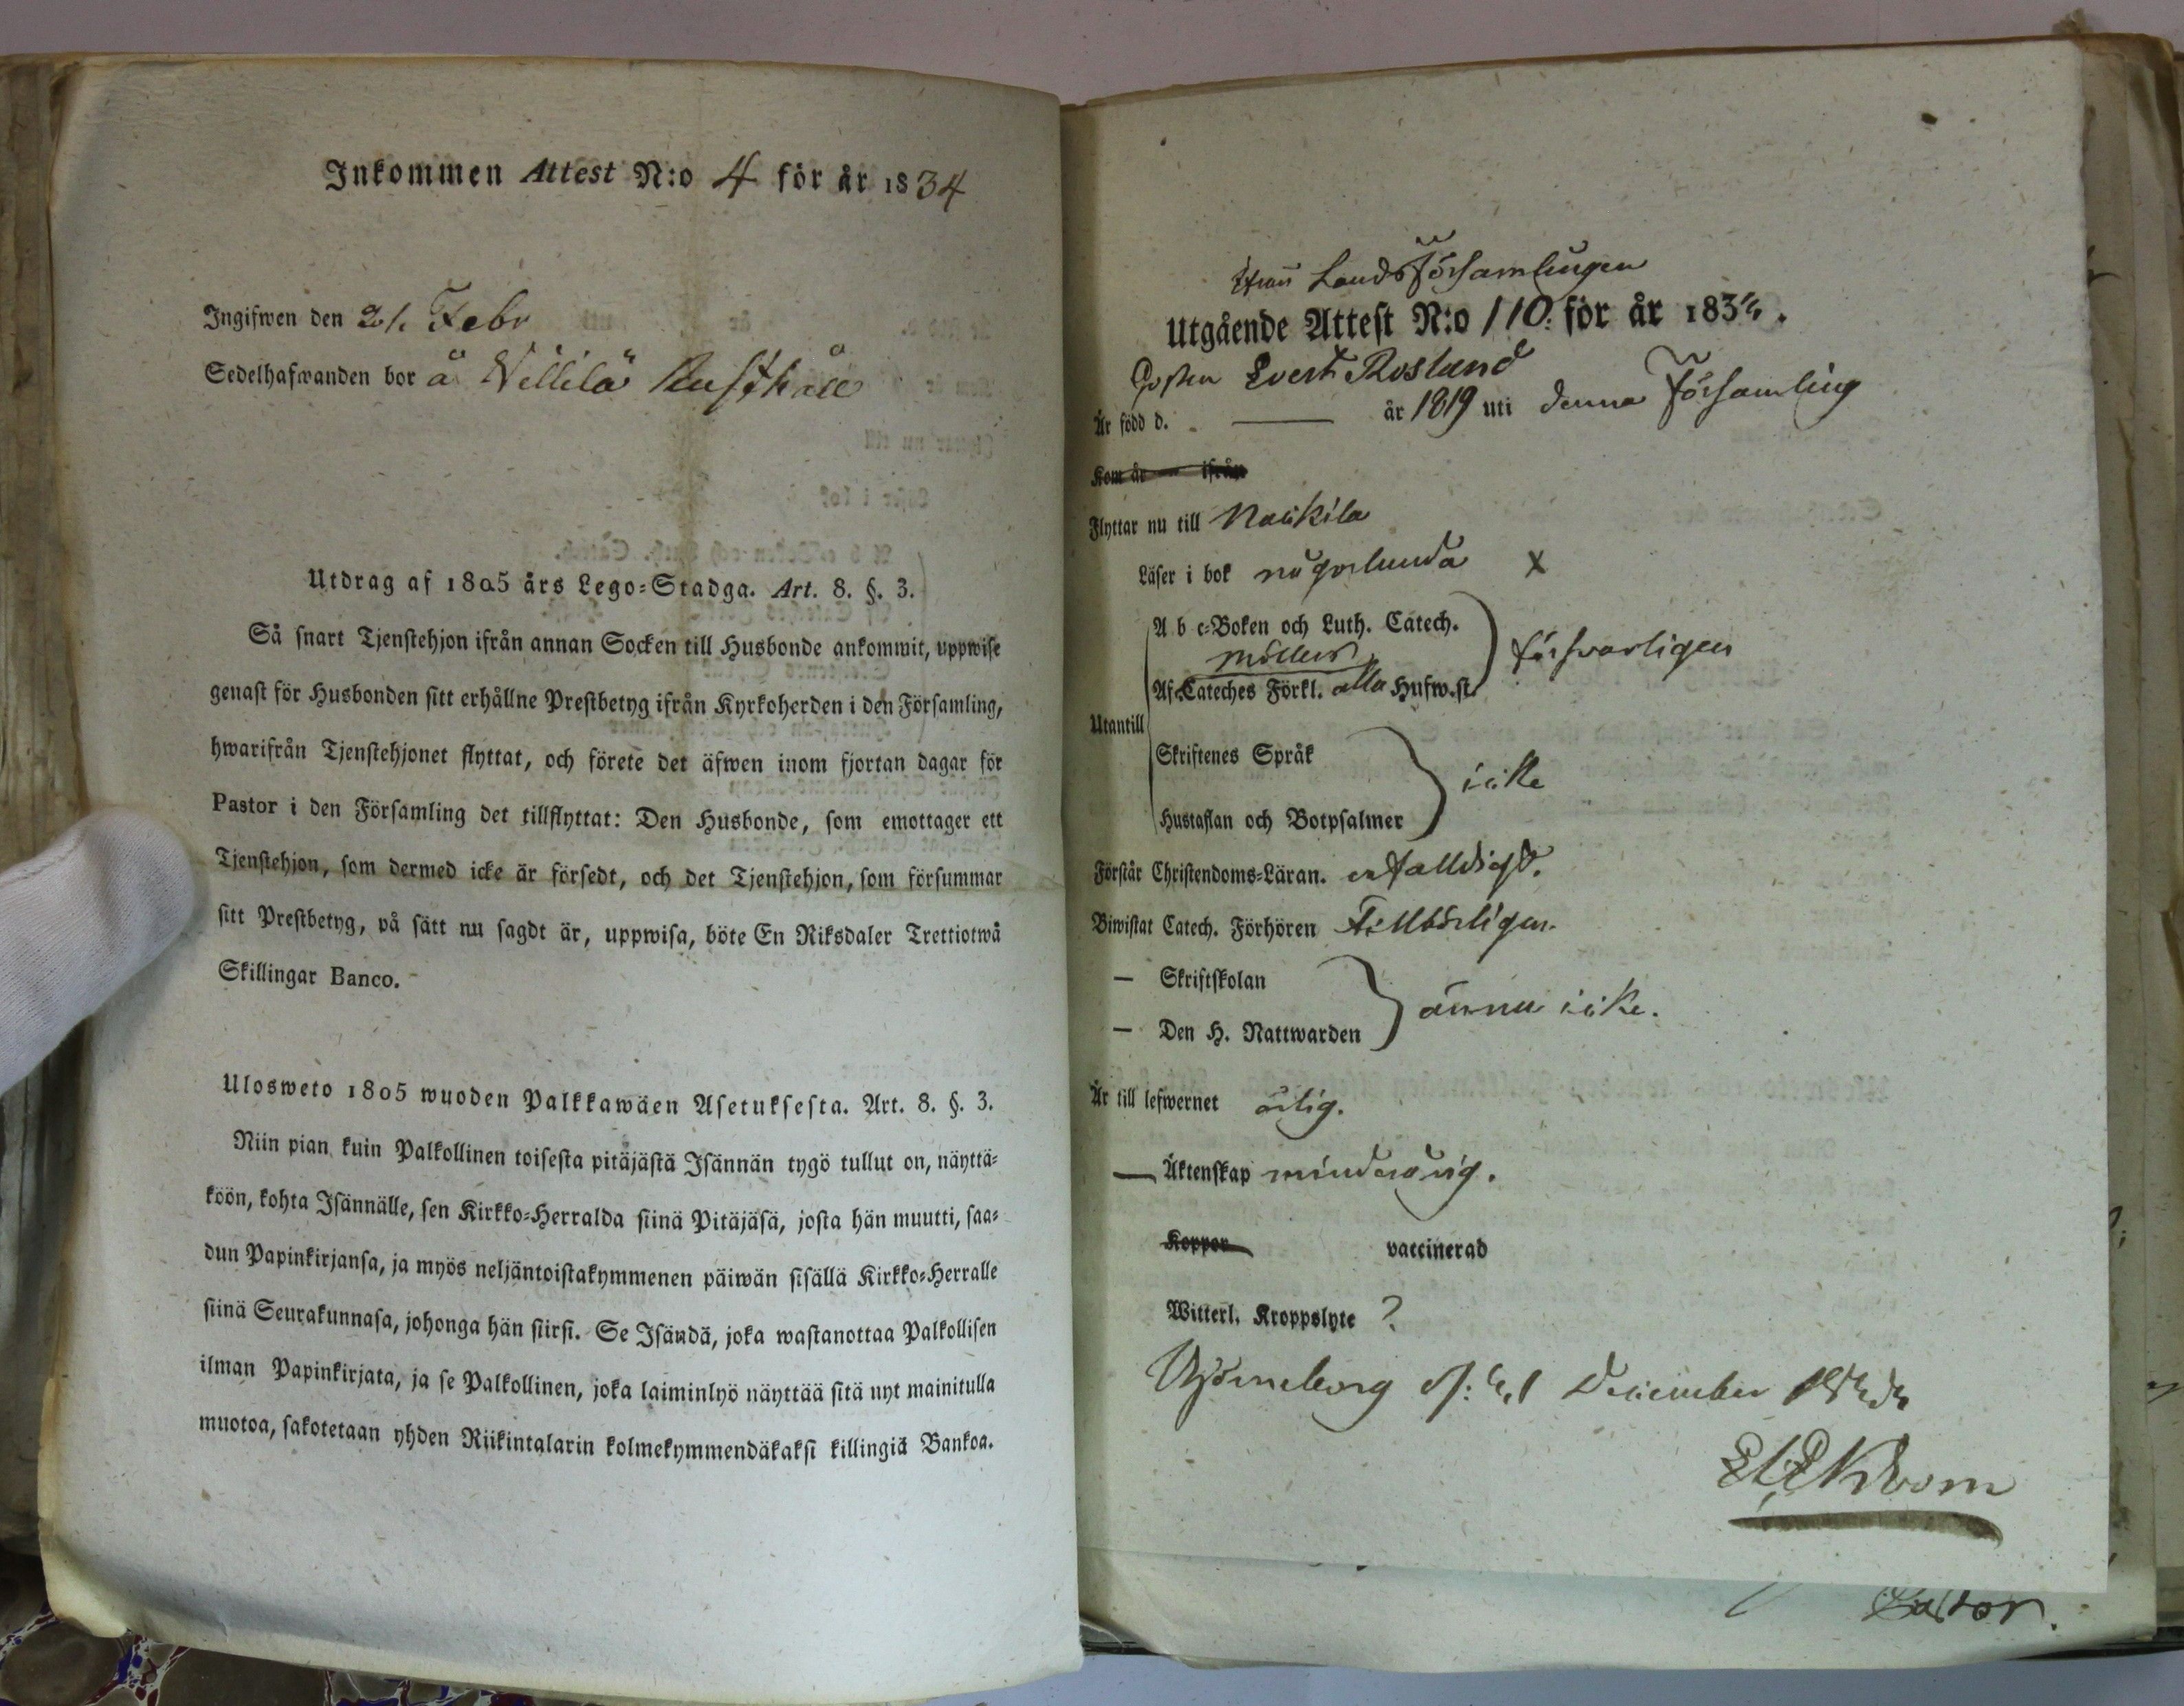 Inkommen Attest N:o 4 för år 1834
Ingifwen den 2/1 Febr
Sedelhafwanden bor å Villilä Rusthåll
Utdrag af 1805 års Lego-Stadga. Art. 8. §. 3.
Så snart Tjenstehjon ifrån annan Socken till Husbonde ankommit, uppwise
genast för Husbonden sitt erhållne Prestbetyg ifrån Kyrkoherden i den Församling,
hwarifrån Tjenstehjonet flyttat, och förete det äfwen inom fjortan dagar för
Pastor i den Församling det tillflyttat: Den Husbonde, som emottager ett
Tjenstehjon, som dermed icke är försedt, och det Tjenstehjon, som försummar
sitt Prestbetyg, på sätt nu sagdt är, uppwisa, böte En Riksdaler Trettiotwå
Skillingar Banco.
Ulosweto 1805 wuoden Palkkawäen Asetuksesta. Art. 8. §. 3.
Niin pian kuin Palkollinen toisesta pitäjästä Isännän tygö tullut on, näyttä-
köön, kohta Isännälle, sen Kirkko-Herralda siinä Pitäjäsä, josta hän muutti, saa-
dun Papinkirjansa, ja myös neljäntoistakymmenen päiwän sisällä Kirkko-Herralle
siinä Seurakunnasa, johonga hän siirsi. Se Isändä, joka wastanottaa Palkollisen
ilman Papinkirjata, ja se Palkollinen, joka laiminlyö näyttää sitä nyt mainitulla
muotoa, sakotetaan yhden Riikintalarin kolmekymmendäkaksi killingiä Bankoa.
från Landsförsamlingen
Utgående Attest N:o 110. för år 183
Gossen Evert Rosland
Är född d. — år 1819 uti denna Församling
Kom år ifrån
Flyttar nu till Nackila
Läser i bok någorlunda X
A b c-Boken och Luth. Catech.
Möllers
Af Cateches Förkl. alla Hufw.st.
försvarligen
Utantill
Skriftenes Språk
Hustaflan och Botpsalmer
icke
Förstår Christendoms-Läran. enfalldigt.
Biwistat Catech. Förhören Tillbörligen.
— Skriftskolan
— Den H. Nattwarden
ännu icke.
Är till lefwernet ärlig.
— Äktenskap minderårig.
Koppor vaccinerad
Witterl. Kroppslyte ?
Björneborg d: December
Pastor.